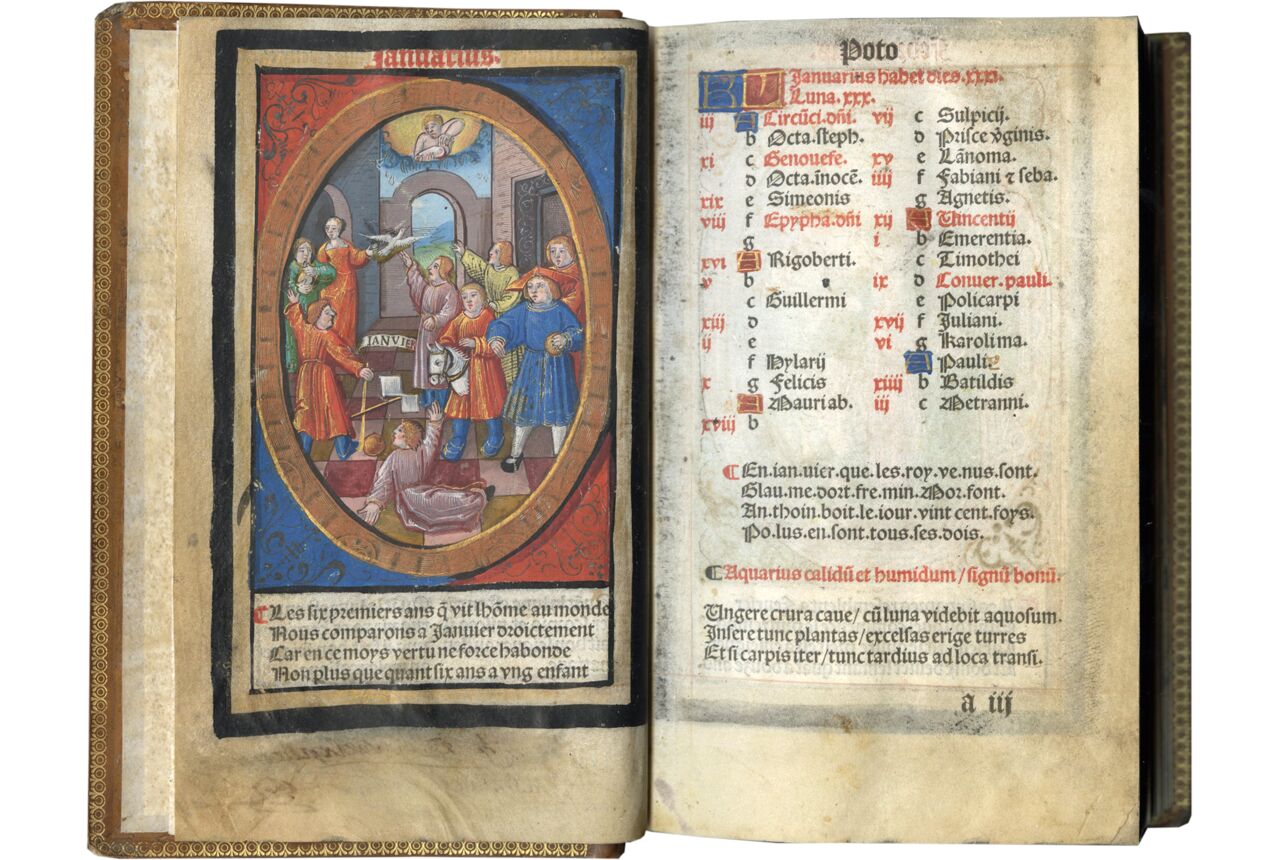 Januarius.
JANVIER
Les six premiers ans q̃ vit lhõme au monde
Nous comparons a Januier droictement
Car en ce moys vertu ne force habonde
Non plus que quant six ans a vng enfant
Poto
KL Januarius habet dies .xxxi.
Luna .xxx.
iij A Circũci. dñi.
b Octa. steph.
xi c Genouefe.
d Octa. ĩnocẽ.
xix e Simeonis
viii f Epypha. dñi
g
xvi A Rigoberti.
v b
c Guillermi
xiii d
ii e
f Hylarij
x g Felicis
A Mauri ab.
xviii b
vij c Sulpicij.
d Prisce v̾ginis.
xv e Lãnoma.
iiij f Fabiani ⁊ seba.
g Agnetis.
xij A Vincentij
i b Emerentia.
c Timothei
ix d Conuer. pauli.
e Policarpi
xvij f Juliani.
vi g Karoli ma.
A Pauli.
xiiij b Batildis
iij c Metranni.
En.ian.uier.que.les.roy.ve.nus.sont.
Glau.me.dort.fre.min.Mor.font.
An.thoin.boit.le.iour.vint.cent.foys.
Po.lus.en.sont.tous.ses.dois.
Aquarius calidũ et humidum / signũ bonũ.
Ungere crura caue / cũ luna videbit aquosum.
Insere tunc plantas / excelsas erige turres
Et si carpis iter / tunc tardius ad loca transi.
a iij